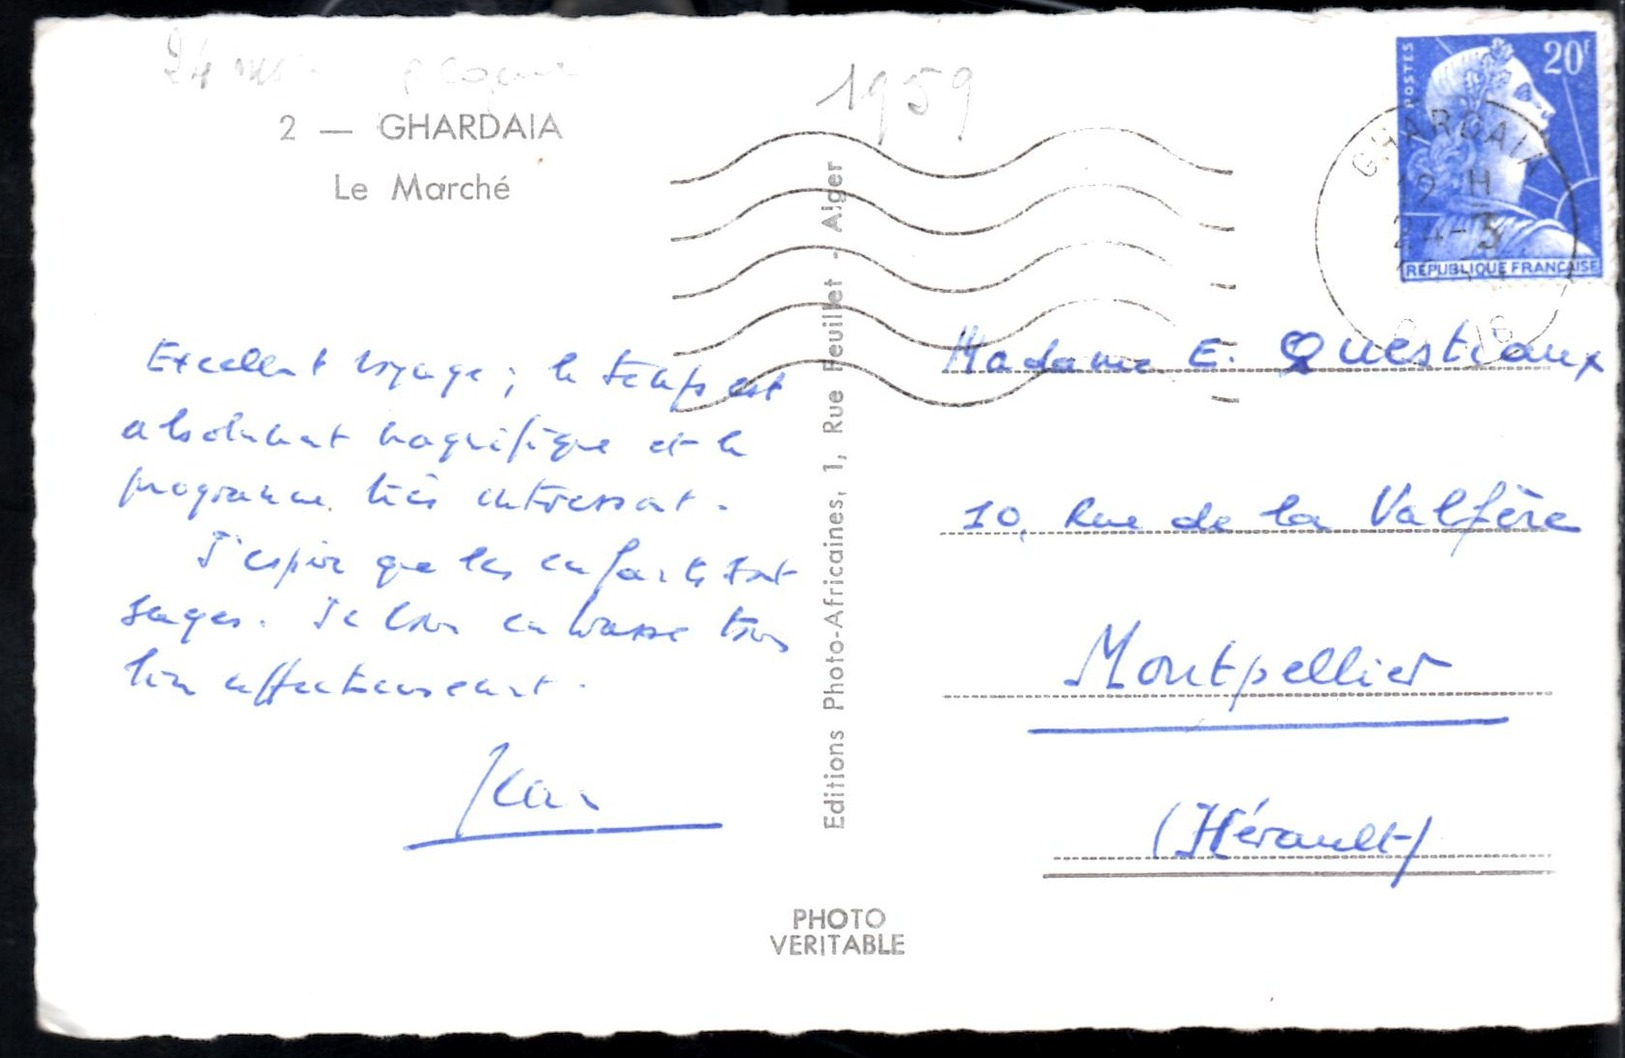 1959
2 — GHARDAIA
Le Marché
POSTES
20F
REPUBLIQUE FRANÇAISE
GHARDAIA
19 H
24-3
Excellent voyage ; le temps est
absolument magnifique et le
programme très intéressant.
J'espère que les enfants sont
sages. Je vous embrasse tous
bien affectueusement.
Jean
Editions Photo-Africaines, 1, Rue Feuillet - Alger
Madame E. Questiaux
10, Rue de la Valfère
Montpellier
(Hérault)
PHOTO
VERITABLE